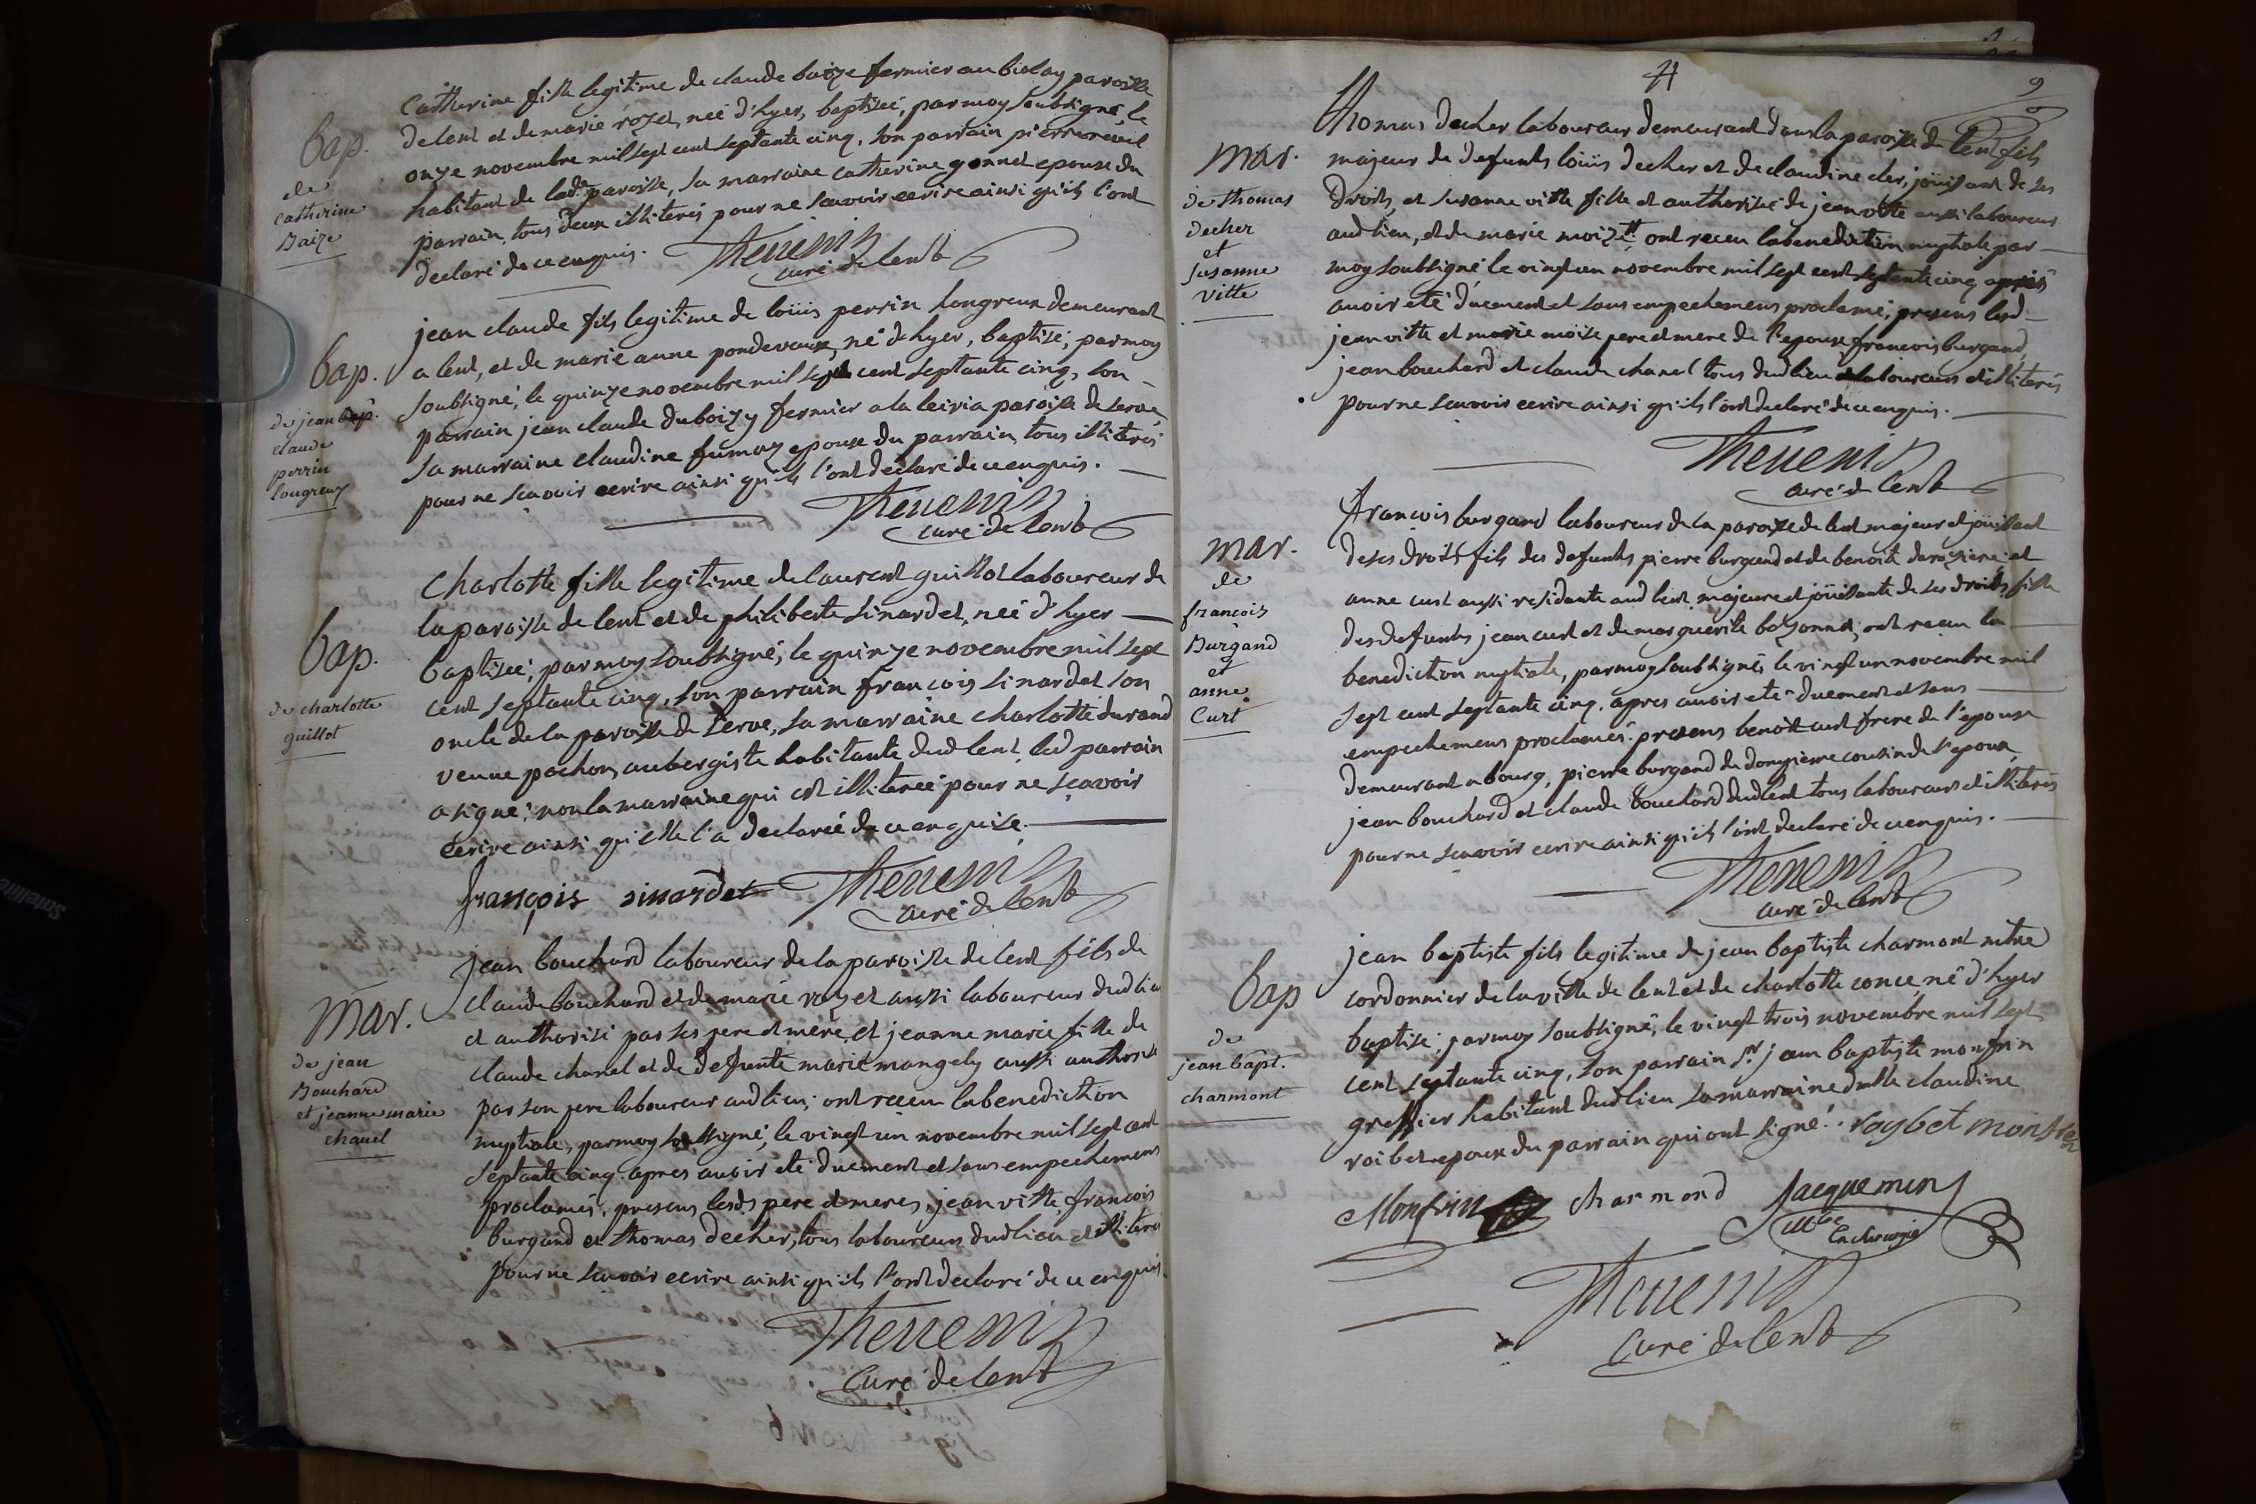 bap.
de
catherine
Baize
Catherine fille legitime de claude baize fermier au biolay paroisse
de lent et de marie royet, née d'hyer, baptisée, par moy soubsigné, le
onze novembre mil sept cent septante cinq, son parrain pierre
habitant de lade paroisse, sa marraine catherine gonnet epouse du
parrain tous deux illiterés pour ne scavoir ecrire ainsi qu'ils l'ont
declaré de ce enquis.
Thevenin
curé de lent
bap.
de jean bap.
claude
perrin
longreux
jean claude fils legitime de loüis perrin longreux demeurant
a lent, et de marie anne pondevaux, né d'hyer, baptisé, par moy
soubsigné, le quinze novembre mil sept cent septante cinq, son
parrain jean claude duboizy fermier a la leiria paroisse de serve,
sa marraine claudine fumoy epouse du parrain, tous illiterés
pour ne scavoir ecrire ainsi qu'ils l'ont declaré de ce enquis.
Thevenin
curé de lent
bap.
de charlotte
guillot
Charlotte fille legitime de laurent guillot laboureur de
la paroisse de lent et de philiberte sinardet, née d'hyer
baptisée, par moy soubsigné, le quinze novembre mil sept
cent septante cinq, son parrain francois sinardet son
oncle de la paroisse de serve, sa marraine charlotte durand
veuve pochon, aubergiste habitante dud lent, led parrain
a signé, non la marraine qui est illiterée pour ne scavoir
ecrire ainsi qu'elle l'a declarée de ce enquise.
françois sinardet
Thevenin
curé de lent
mar.
de jean
Bouchard
et jeanne marie
chanel
jean bouchard laboureur de la paroisse de lent fils de
claude bouchard et de marie royet aussi laboureur dud lieu
et authorisé par ses pere et mere, et jeanne marie fille de
claude chanel et de defunte marie mangely aussi authorisée
par son pere laboureur aud lieu; ont receu la benediction
nuptiale, par moy soubsigné, le vingt un novembre mil sept cent
septante cinq apres avoir eté duement et sans empechemens
proclamés, presens lesds pere et meres, jean vitte, francois
burgand et thomas decher, tous laboureurs dud lieu et illiterés
pour ne scavoir ecrire ainsi qu'ils l'ont declaré de ce enquis.
Thevenin
Curé de lent
9
mar.
de thomas
decher
et
susanne
vitte
Thomas decher laboureur demeurant dans la paroisse de lent fils
majeur de defunts loüis decher et de claudine cler, joüissant de ses
droits, et susanne vitte fille et authorisée de jean vitte aussi laboureur
aud lieu, et de marie moize ont receu la benediction nuptiale par
moy soubsigné le vingt un novembre mil sept cent septante cinq apprès
avoir eté duement et sans empechemens proclamé, presens lesd
jean vitte et marie moise pere et mere de l'epouse, francois burgand,
jean bouchard et claude chanel tous dud lieu laboureurs et illiterés
pour ne scavoir ecrire ainsi qu'ils l'ont declaré de ce enquis.
Thevenin
curé de lent
mar.
de
francois
Burgand
et
anne
Curt
francois burgand laboureur de la paroisse de lent majeur et joüissant
de ses droits fils des defunts pierre burgand et de benoite et
anne curt aussi residante aud lent, majeure et joüissante de ses droits, fille
des defunts jean curt et de marguerite bozonnet, ont receu la
benediction nuptiale, par moy soubsigné, le vingt un novembre mil
sept cent septante cinq. apres avoir eté duement et sans
empechemens proclamés. presens benoit curt frere de l'epouse
demeurant a bourg, pierre burgand de dompierre cousin de l'epoux,
jean bouchard et claude bouchard dud lent tous laboureurs et illiterés
pour ne scavoir ecrire ainsi qu'ils l'ont declaré de ce enquis.
Thevenin
curé de lent
bap
de
jean bapt.
charmont
jean baptiste fils legitime de jean baptiste charmont mitre
cordonnier de la ville de lent et de charlotte conce, né d'hyer
baptisé, par moy soubsigné, le vingt trois novembre mil sept
cent septante cinq, son parrain sr. jean baptiste monfrin
greffier habitant dud lieu sa marraine dulle claudine
roibet epouse du parrain qui ont signé. roybet monfrin
Monfrin charmond Jacquemin
Mtre
En chirurgie
Thevenin
Curé de lent